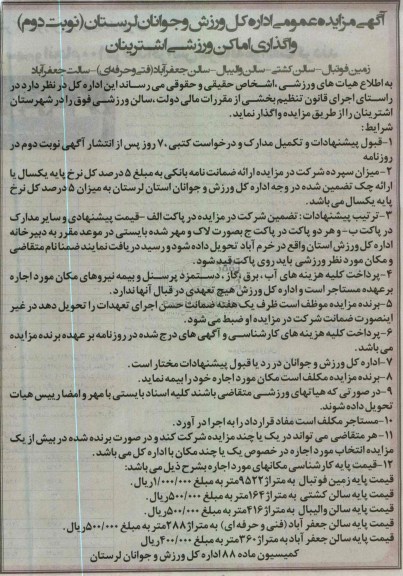 آگهی مزایده عمومی اداره کل ورزش و جوانان لرستان (نوبت دوم)
واگذاری اماکن ورزشی اشترینان
زمین فوتبال - سالن کشتی - سالن والیبال - سالن جعفرآباد (فنی و حرفه ای) - سالت جعفرآباد
به اطلاع هیات های ورزشی، اشخاص حقیقی و حقوقی می رساند این اداره کل در نظر دارد در
راستای اجرای قانون تنظیم بخشی از مقررات مالی دولت، سالن ورزشی فوق را در شهرستان
اشترینان را از طریق مزایده واگذار نماید.
شرایط:
۱- قبول پیشنهادات و تکمیل مدارک و درخواست کتبی ۷۰ روز پس از انتشار آگهی نوبت دوم در
روزنامه
۲- میزان سپرده شرکت در مزایده ارائه ضمانت نامه بانکی به مبلغ ۵ درصد کل نرخ پایه یکسال یا
ارائه چک تضمین شده در وجه اداره کل ورزش و جوانان استان لرستان به میزان ۵ درصد کل نرخ
پایه یکسال می باشد.
۳- ترتیب پیشنهادات: تضمین شرکت در مزایده در پاکت الف - قیمت پیشنهادی و سایر مدارک
در پاکت ب - و هر دو پاکت در پاکت ج بصورت لاک و مهر شده بایستی در موعد مقرر به دبیرخانه
اداره کل ورزش استان واقع در خرم آباد تحویل داده شود و رسید دریافت نمایند ضمنا نام متقاضی
و مکان مورد نظر ورزشی باید روی پاکت قید شود.
۴- پرداخت کلیه هزینه های آب، برق، گاز، دستمزد پرسنل و بیمه نیروهای مکان مورد اجاره
بر عهده مستاجر است و اداره کل ورزش هیچ تعهدی در قبال آنها ندارد.
۵- برنده مزایده موظف است ظرف یک هفته ضمانت حسن اجرای تعهدات را تحویل دهد در غیر
اینصورت ضمانت شرکت در مزایده او ضبط می شود.
۶- پرداخت کلیه هزینه های کارشناسی و آگهی های درج شده در روزنامه بر عهده برنده مزایده
می باشد.
۷- اداره کل ورزش و جوانان در رد یا قبول پیشنهادات مختار است.
۸- برنده مزایده مکلف است مکان مورد اجاره خود را بیمه نماید.
۹- در صورتی که هیاتهای ورزشی متقاضی باشند کلیه اسناد بایستی با مهر و امضا رییس هیات
تحویل داده شوند.
۱۰- مستاجر مکلف است مفاد قرارداد را به اجرا در آورد.
۱۱- هر متقاضی می تواند در یک یا چند مزایده شرکت کند و در صورت برنده شده در بیش از یک
مزایده انتخاب مورد اجاره در خصوص یک یا چند مکان با اداره کل می باشد.
۱۲- قیمت پایه کارشناسی مکانهای مورد اجاره بشرح ذیل می باشد:
قیمت پایه زمین فوتبال به متراژ ۹۵۲۲ متر به مبلغ ۱/۰۰۰/۰۰۰ ریال.
قیمت پایه سالن کشتی به متراژ ۱۶۴ متر به مبلغ ۵۰۰/۰۰۰ ریال.
قیمت پایه سالن والیبال به متراژ ۴۱۶ متر به مبلغ ۵۰۰/۰۰۰ ریال.
قیمت پایه سالن جعفر آباد (فنی و حرفه ای) به متراژ ۲۸۸ متر به مبلغ ۵۰۰/۰۰۰ ریال.
قیمت پایه سالن جعفر آباد به متراژ ۳۶۰ متر به مبلغ ۴۰۰/۰۰۰ ریال
کمیسیون ماده ۸۸ اداره کل ورزش و جوانان لرستان